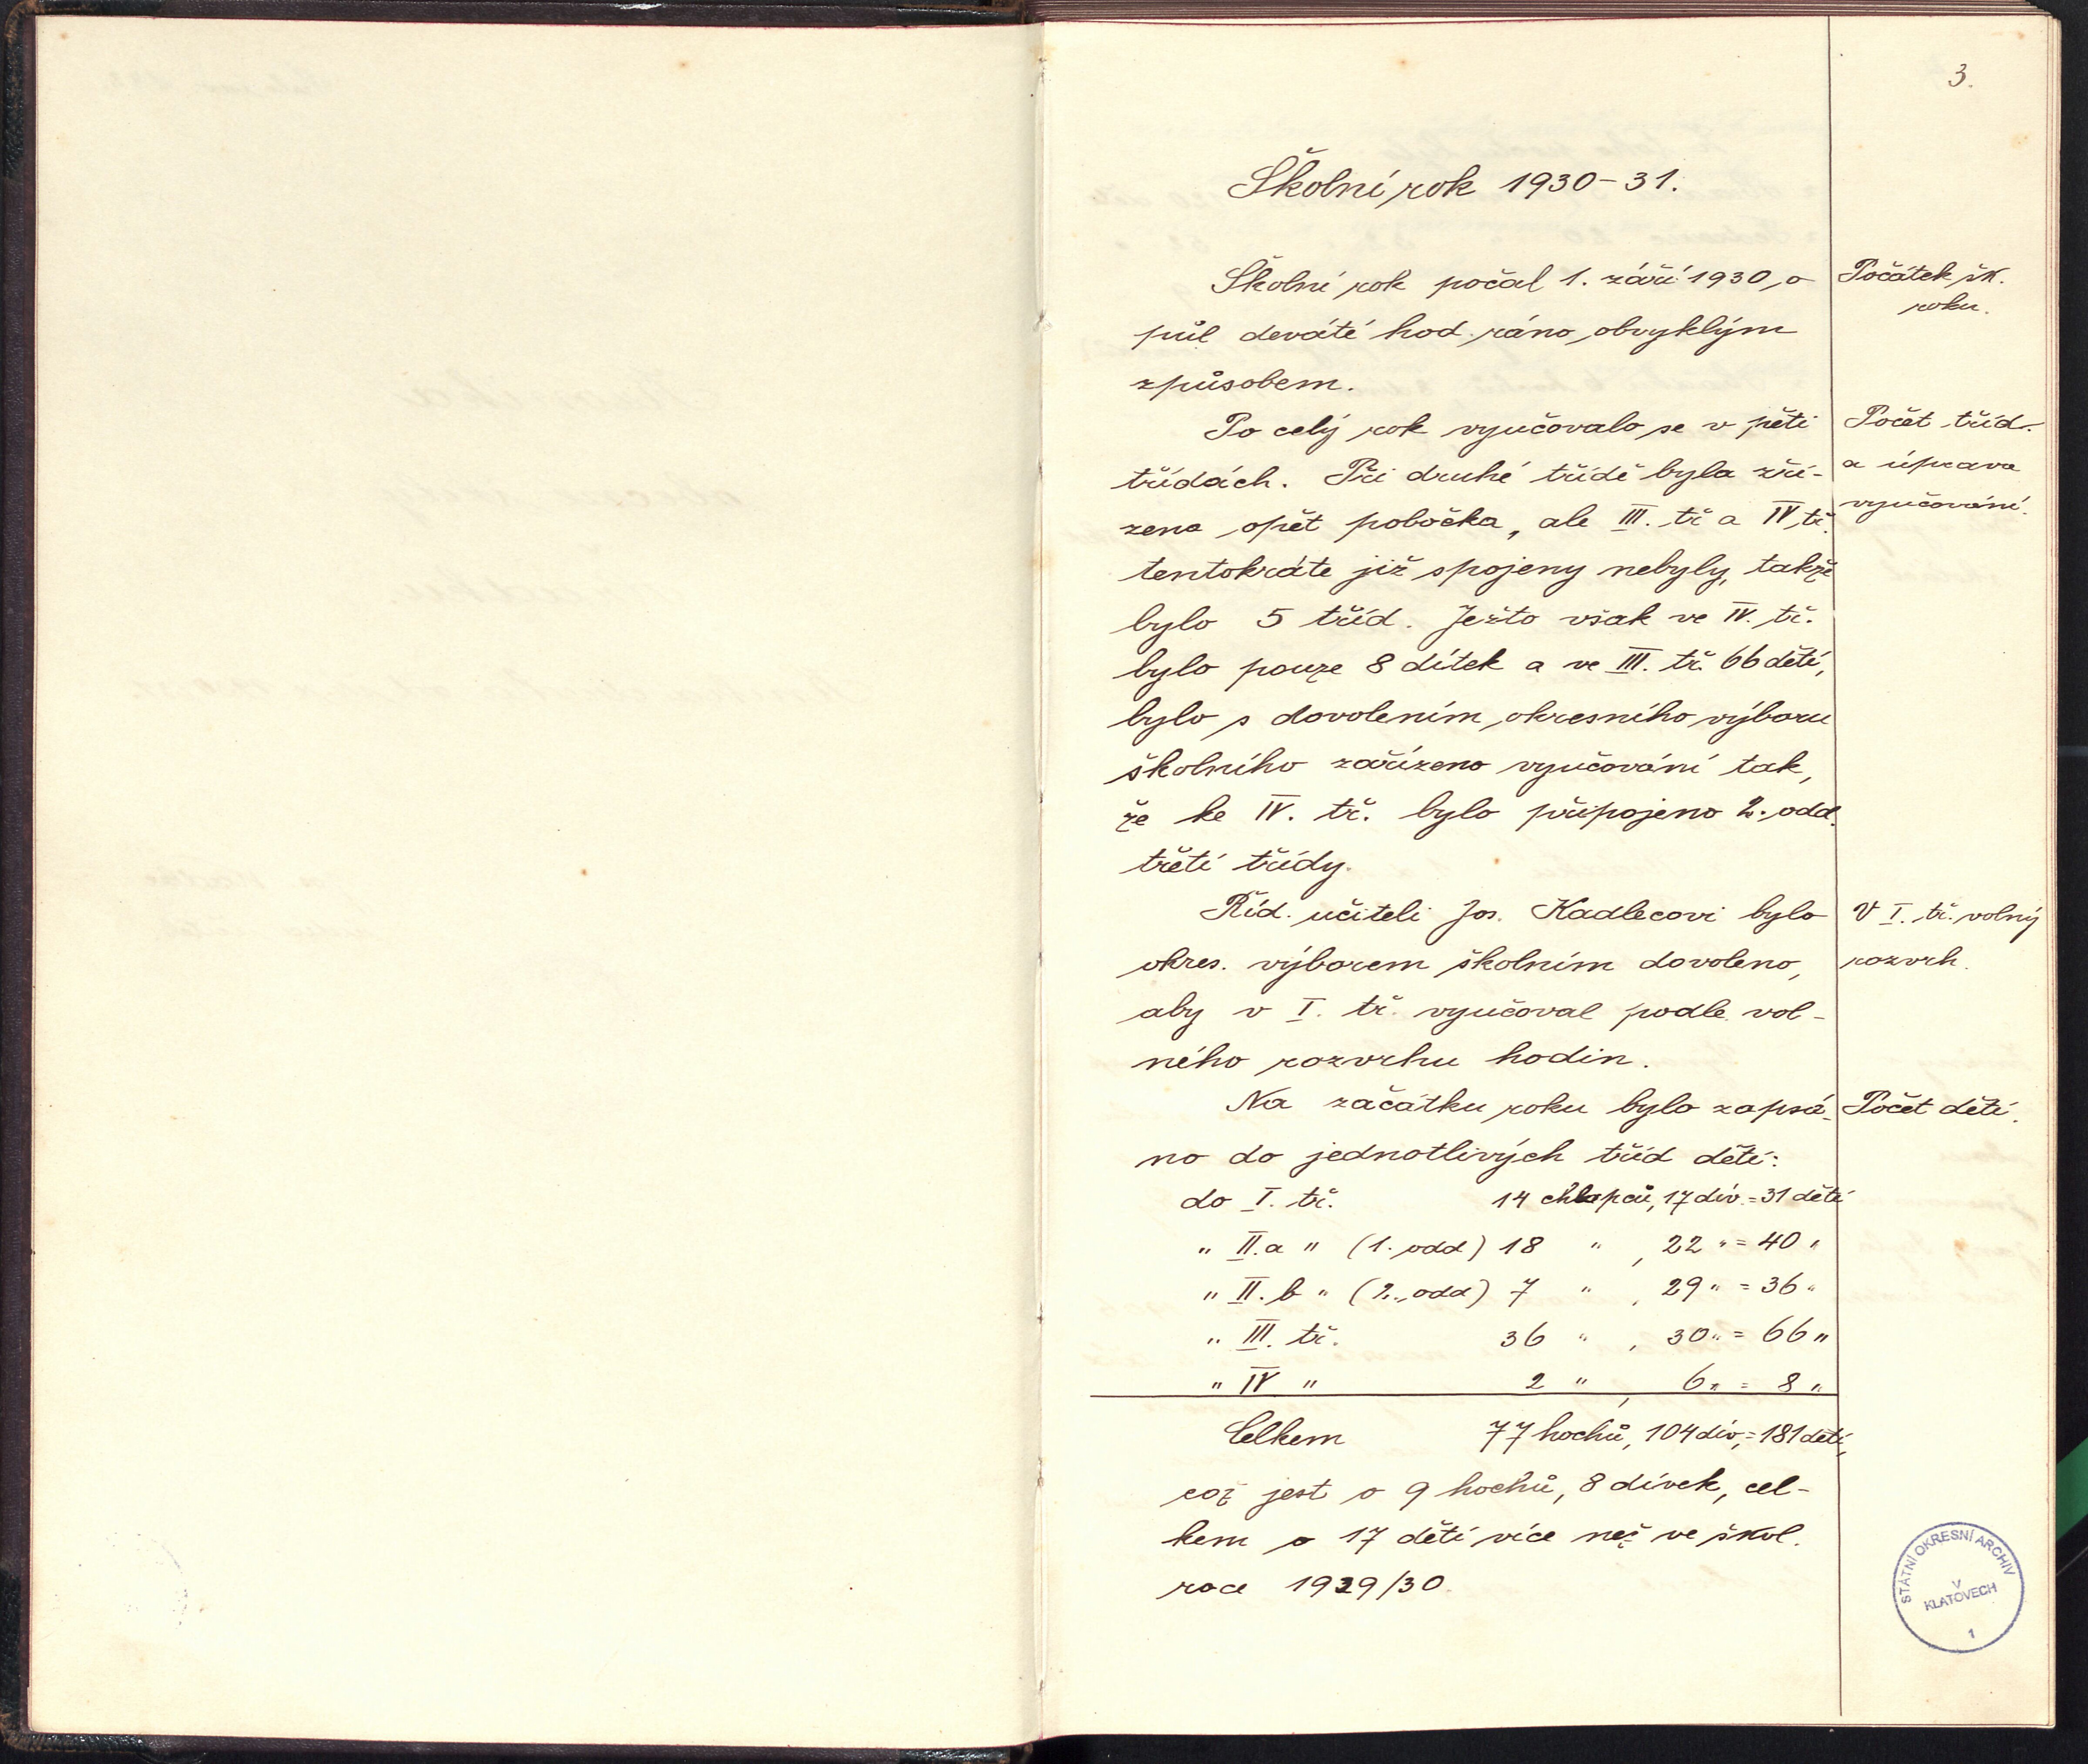 3.
Školní rok 1930-31.
Školní rok počal 1. září 1930, o
půl deváté hod. ráno, obvyklým
způsobem.
Počátek šk.
roku.
Po celý rok vyučovalo se v pěti
třídách. Při druhé třídě byla zří-
zena opět pobočka, ale III. tř a IV tř.
tentokráte již spojeny nebyly, takže
bylo 5 tříd. Ježto však ve IV. tř.
bylo pouze 8 dítek a ve III. tř. 66 dětí,
bylo s dovolením okresního výboru
školního zařízeno vyučování tak,
že ke IV. tř. bylo připojeno 2. odd.
třetí třídy.
Počet tříd
a úprava
vyučování.
Říd. učiteli Jos. Kadlecovi bylo
okres. výborem školním dovoleno,
aby v I. tř. vyučoval podle vol-
ného rozvrhu hodin.
V I. tř. volný
rozvrh.
Na začátku roku bylo zapsá-
no do jednotlivých tříd dětí:
Počet dětí.
do I. tř. 14 chlapců, 17 dív. = 31 dětí
" II.a " (1. odd) 18 " , 22 " = 40 "
" II. b " (2. odd) 7 " , 29 " = 36 "
" III. tř. 36 " , 30 " = 66 "
" IV " 2 " , 6 " = 8 "
Celkem 77 hochů, 104 dív. = 181 dětí,
což jest o 9 hochů, 8 dívek, cel-
kem o 17 dětí více než ve škol.
roce 1929/30.
STÁTNÍ OKRESNÍ ARCHIV
V
KLATOVECH
1